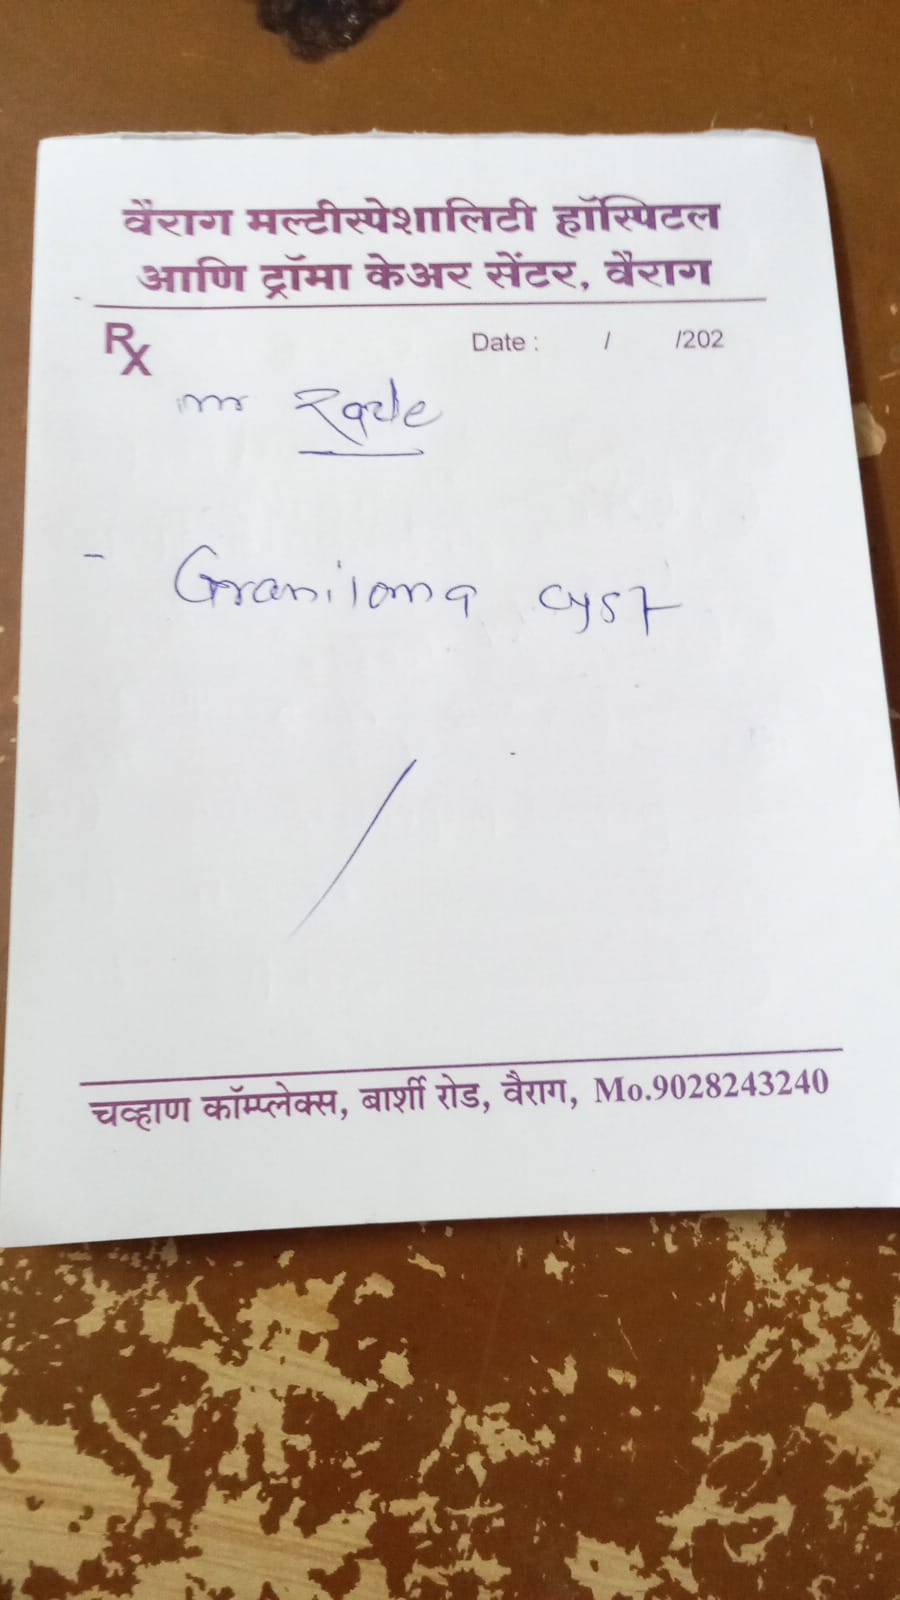 वैराग मल्टीस्पेशालिटी हॉस्पिटल
आणि ट्रॉमा केअर सेंटर, वैराग
Rx
Date : / /202
mr
- Graniloma cyst
चव्हाण कॉम्प्लेक्स, बार्शी रोड, वैराग, Mo.9028243240